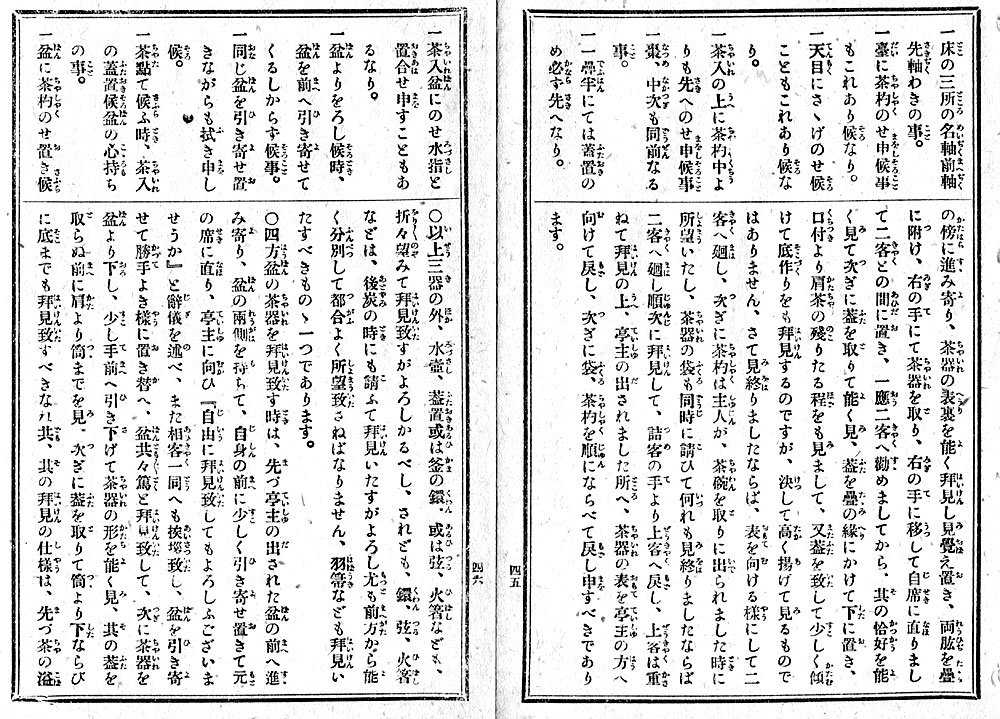 一床の三所の名軸前軸
先軸わきの事。
一臺に茶杓のせ申候事
もこれあり候なり。
一天目にさゝげのせ候
こともこれあり候な
り。
一茶入の上に茶杓中よ
りも先へのせ申候事
一棗、中次も同前なる
事。
一一疊半にては蓋置の
め必す先へなり。
の傍に進み寄り、茶器の表裏を能く拜見し見覺え置き、兩肱を疊
に附け、右の手にて茶器を取り、右の手に移して自席に直りまし
て二客との間に置き、一應二客へ勸めましてから、其の恰好を能
く見て次ぎに蓋を取りて能く見、蓋を疊の緣にかけて下に置き、
口付より肩茶の殘りたる程をも見まして、又蓋を致して少しく傾
けて底作りをも拜見するのですが、決して高く揚げて見るもので
はありません、さて見終りましたならば、表を向ける樣にして二
客へ廻し、次ぎに茶杓は主人が、茶碗を取りに出られました時に
所望いたし、茶器の袋も同時に請ひて何れも見終りましたならば
二客へ廻し順次に拜見して、詰客の手より上客へ戾し、上客は重
ねて拜見の上、亭主の出されました所へ、茶器の表を亭主の方へ
向けて戾し、次ぎに袋、茶杓を順にならべて戾し申すべきであり
ます。
四五
一茶入盆にのせ水指と
置合せ申すこともあ
るなり。
一盆よりをろし候時、
盆を前へ引き寄せて
くるしからず候事。
一同じ盆を引き寄せ置
きながらも拭き申し
候。
一茶點て候ふ時、茶入
の蓋置候盆の心持ち
の事。
一盆に茶杓のせ置き候
〇以上三器の外、水壺、蓋置或は釜の鐶、或は弦、火箸なども、
折々望みて拜見致すがよろしかるべし、されども、鐶、弦、火箸
などは、後炭の時にも請ふて拜見いたすがよろし尤も前方から能
く分別して都合よく所望致さねばなりません、羽箒なども拜見い
たすべきものゝ一つであります。
〇四方盆の茶器を拜見致す時は、先づ亭主の出された盆の前へ進
み寄り、盆の兩側を持ちて、自身の前に少しく引き寄せ置きて元
の席に直り、亭主に向ひ『自由に拜見致してもよろしふございま
せうか』と辭儀を述べ、また相客一同へも挨拶致し、盆を引き寄
せて勝手よき樣に置き替へ、盆共々篤と拜見致して、次に茶器を
盆より下し、少し手前へ引き下げて茶器の形を能く見、其の蓋を
取らぬ前に肩より筒までを見、次ぎに蓋を取りて筒より下ならび
に底までも拜見致すべきなれ共、其の拜見の仕樣は、先づ茶の溢
四六